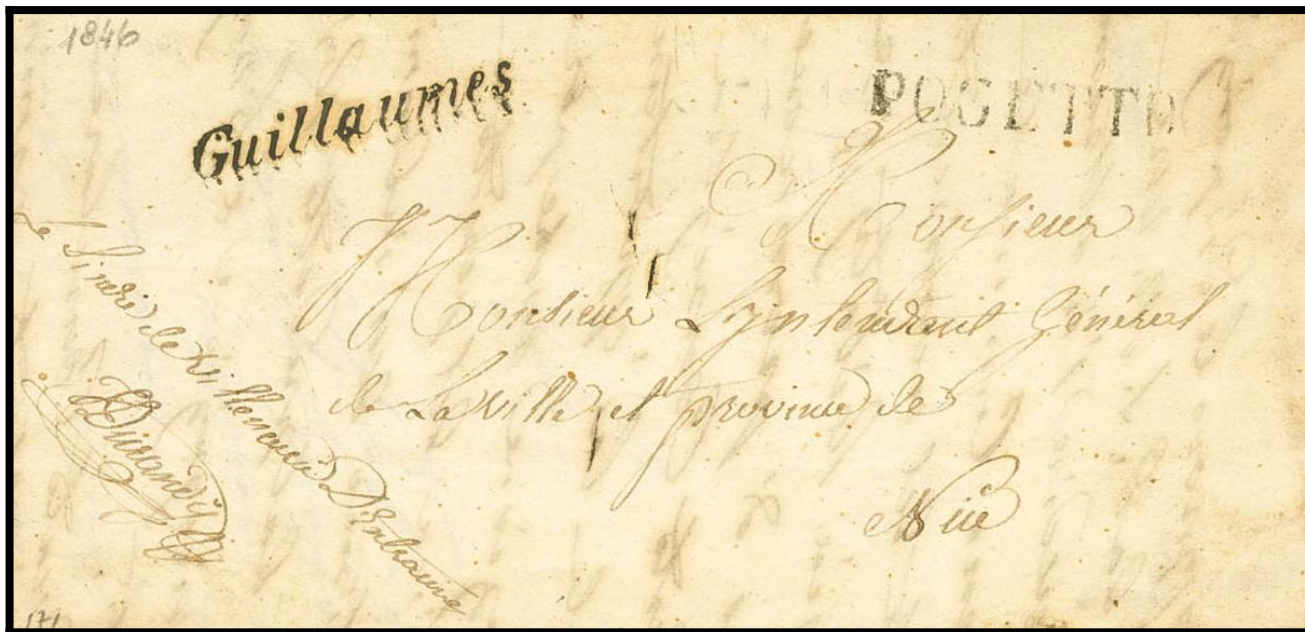 1846
Guillaumes
POGETTO
Monsieur
Monsieur L'intendant Général
de La ville et province de
Nice
Le Sindic de Villeneuve D'Entraunes
171